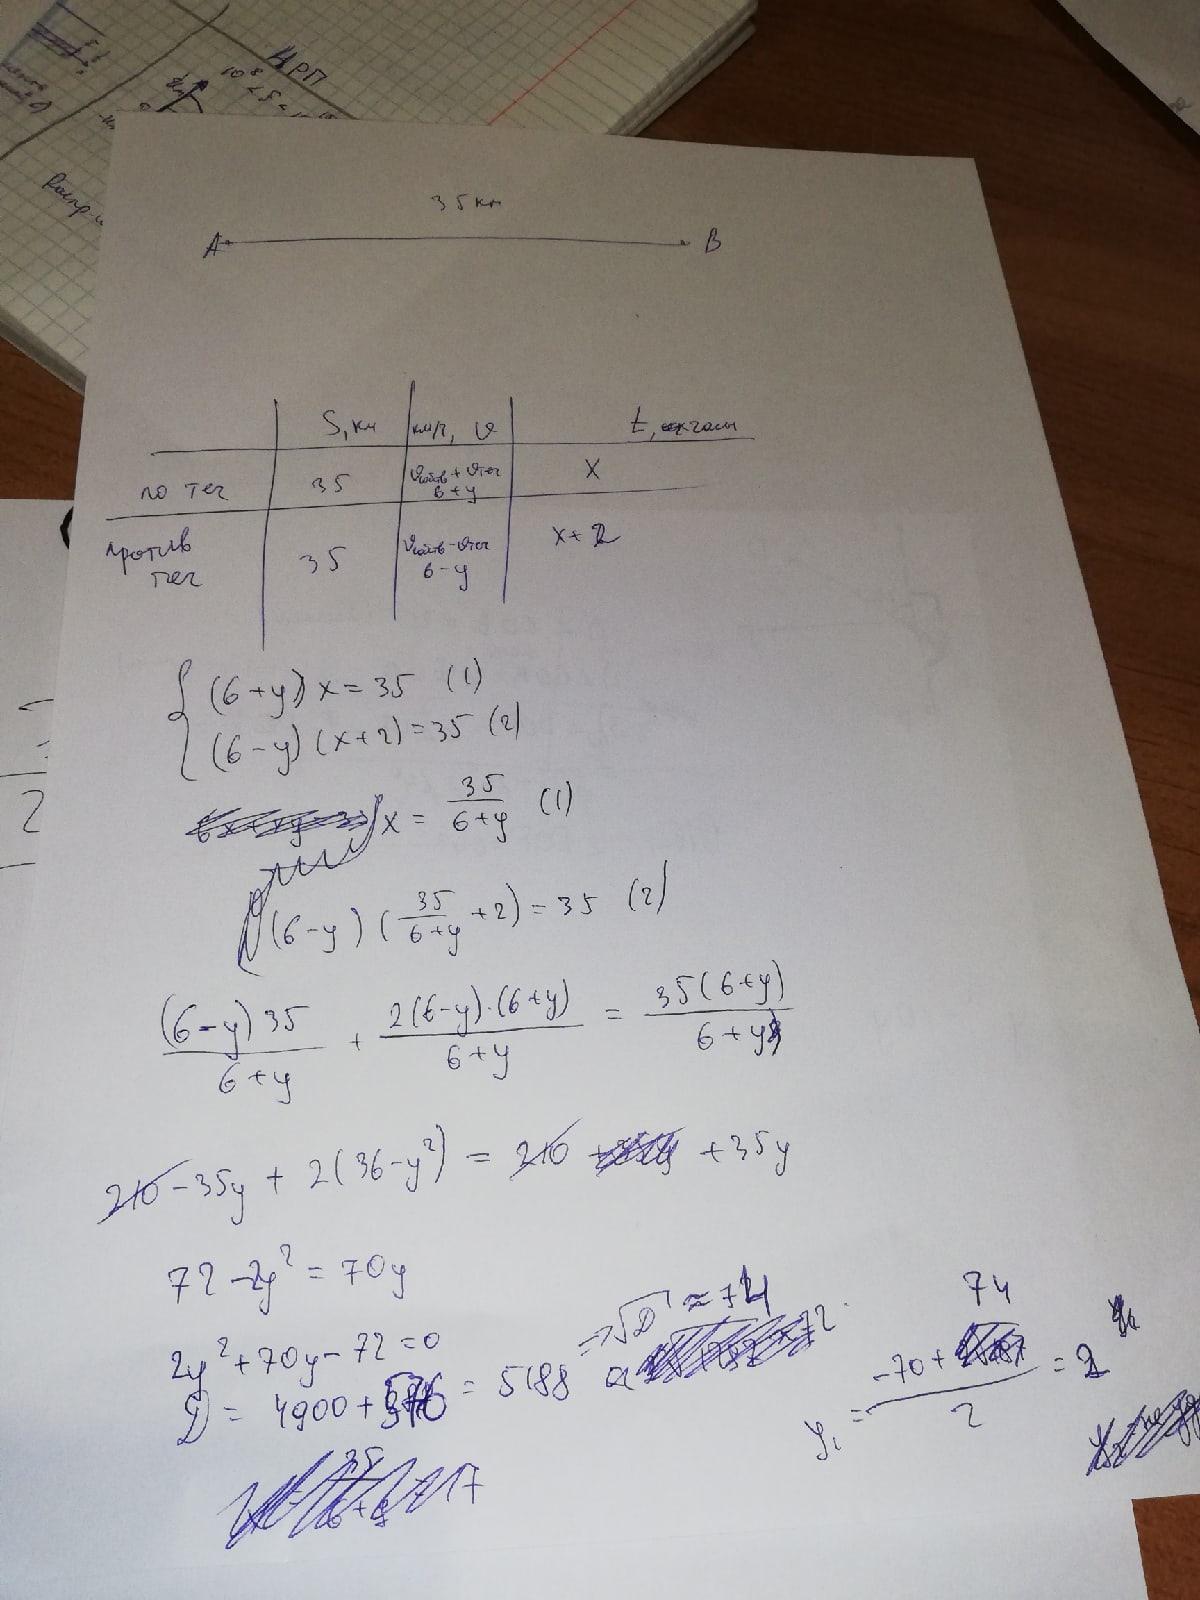 ЦРП
10⁸
35 км
A B
S, км км/ч, v t, часы
по теч 35 vсобств + vтеч 6+y x
против теч 35 vсобств - vтеч 6-y x+2
(6+y) x = 35 (1)
(6-y) (x+2) = 35 (2)
x = 35/(6+y) (1)
(6-y) (35/(6+y) + 2) = 35 (2)
(6-y)35/(6+y) + 2(6-y)·(6+y)/(6+y) = 35(6+y)/(6+y)
210 - 35y + 2(36-y²) = 210 + 35y
72 - 2y² = 70y
2y² + 70y - 72 = 0
D = 4900 + 576 = 5188 => √D ≈ 74
y₁ = (-70 + 74)/2 = 2